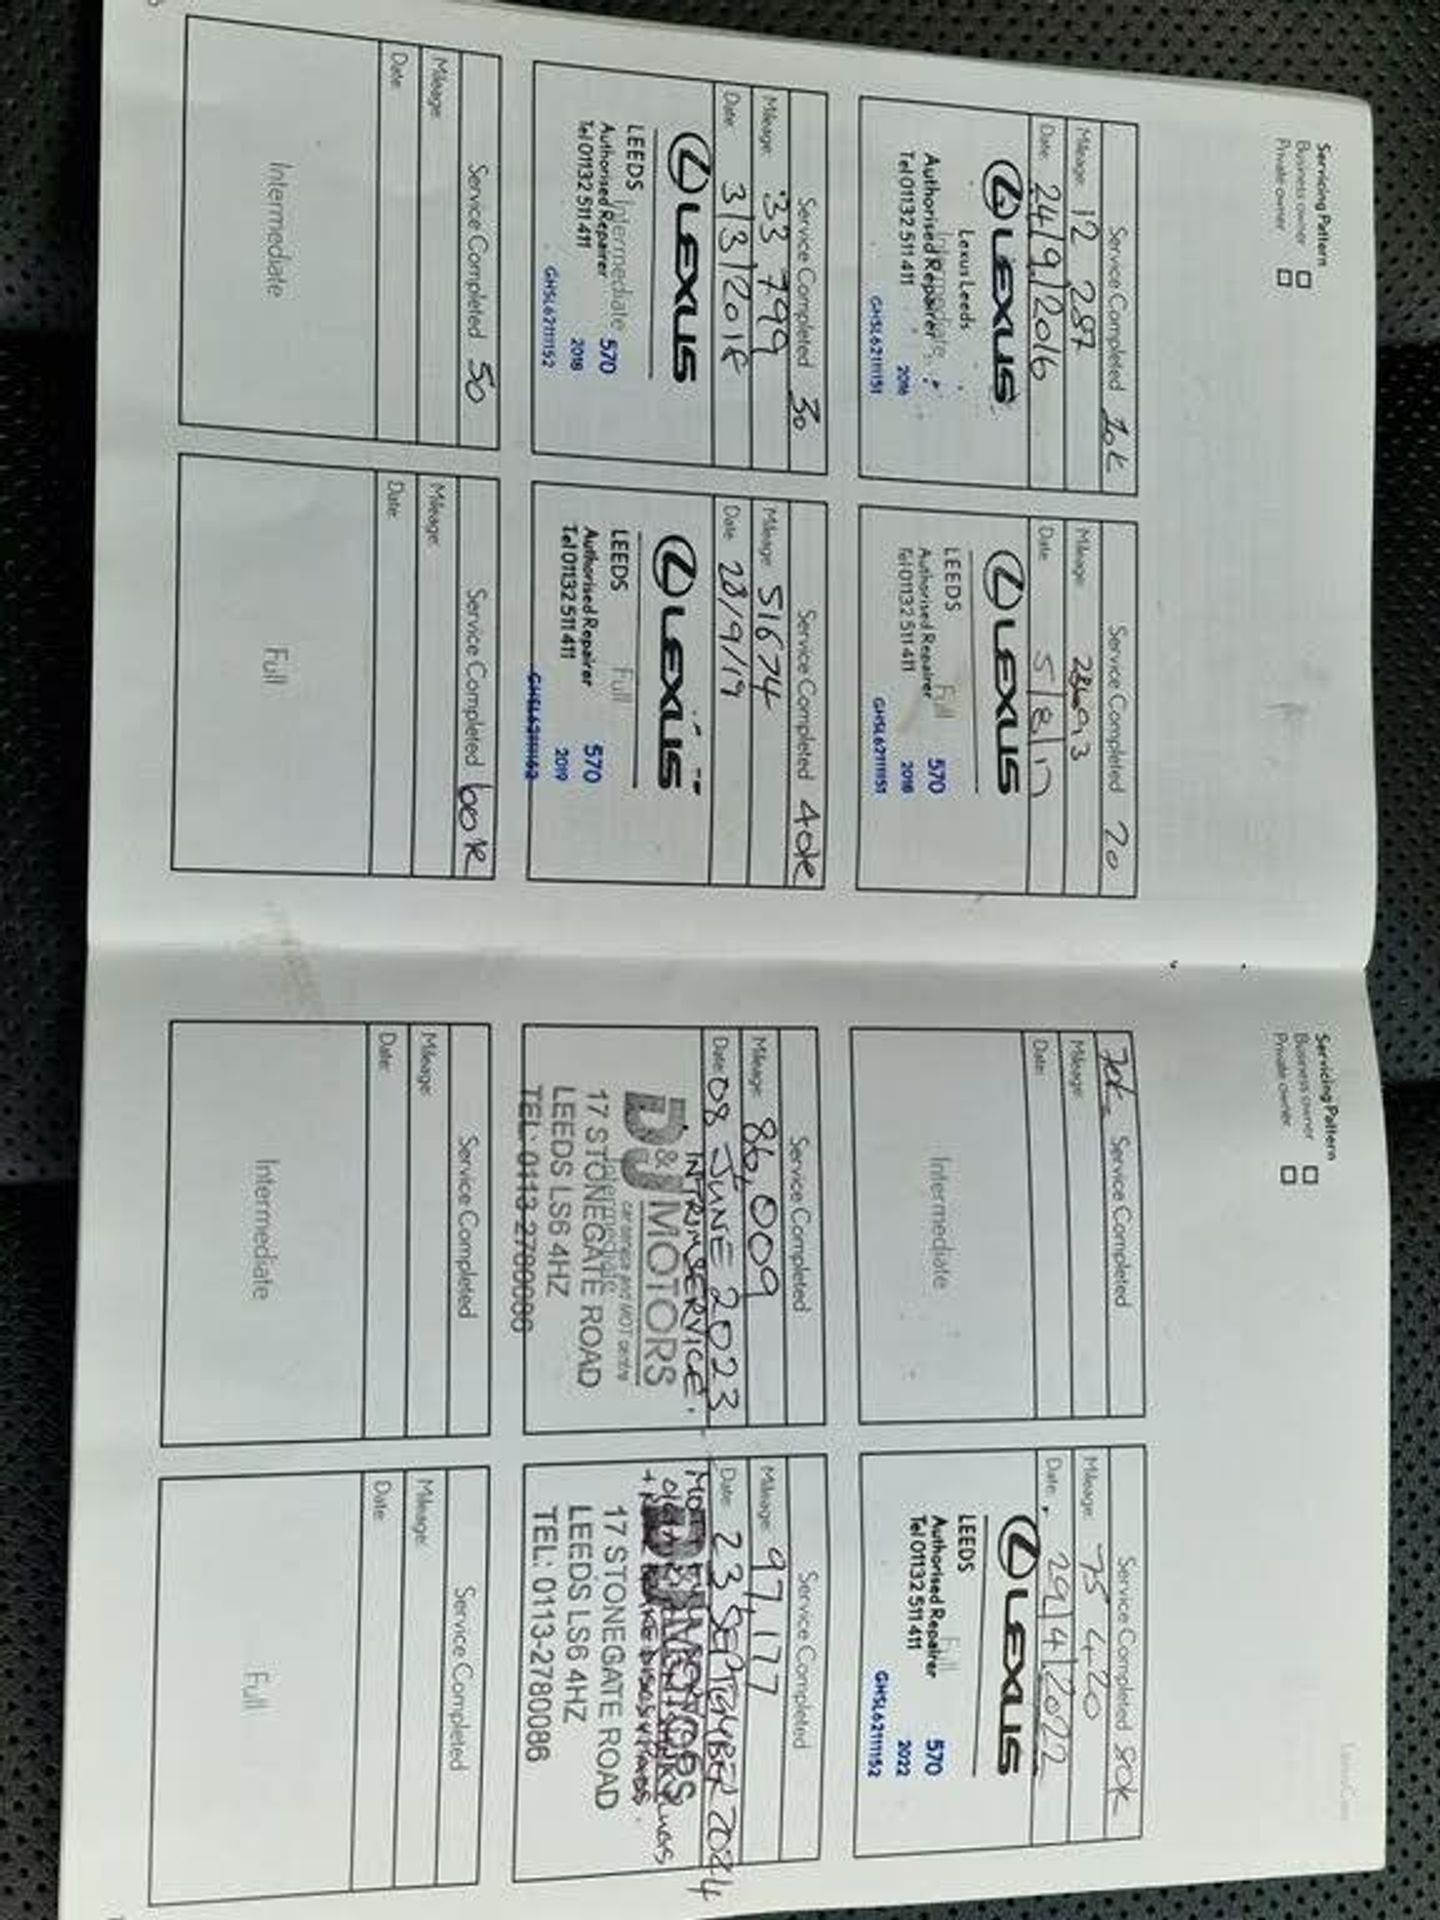 Servicing Pattern
Business owner
Private owner
Service Completed 10k
Mileage: 12 287
Date: 24/9/2016
LEXUS
Lexus Leeds
Intermediate
Authorised Repairer
Tel 01132 511 411
2016
GHSL62111151
Service Completed 20
Mileage:
Date: 5/8/17
LEXUS
LEEDS
Full
Authorised Repairer
Tel 01132 511 411
570
2018
GHSL62111151
Service Completed 30
Mileage: 33,799
Date: 3/3/2018
LEXUS
LEEDS
Intermediate
Authorised Repairer
Tel 01132 511 411
570
2018
GHSL62111152
Service Completed 40k
Mileage: 51674
Date: 28/9/19
LEXUS
LEEDS
Full
Authorised Repairer
Tel 01132 511 411
570
2019
GHSL62111152
Service Completed 50
Mileage:
Date:
Intermediate
Service Completed 60k
Mileage:
Date:
Full
Servicing Pattern
Business owner
Private owner
70k Service Completed
Mileage:
Date:
Intermediate
Service Completed 80k
Mileage: 75 420
Date: 29/4/2022
LEXUS
LEEDS
Full
Authorised Repairer
Tel 01132 511 411
570
2022
GHSL62111152
Service Completed
Mileage: 86,009
Date: 08 JUNE 2023
INTRIM SERVICE.
D&J MOTORS
car service and MOT centre
Intermediate
17 STONEGATE ROAD
LEEDS LS6 4HZ
TEL: 0113-2780086
Service Completed
Mileage: 97,177
Date: 23 SEPTEMBER 2024
MOTORS
17 STONEGATE ROAD
LEEDS LS6 4HZ
TEL: 0113-2780086
Service Completed
Mileage:
Date:
Intermediate
Service Completed
Mileage:
Date:
Full